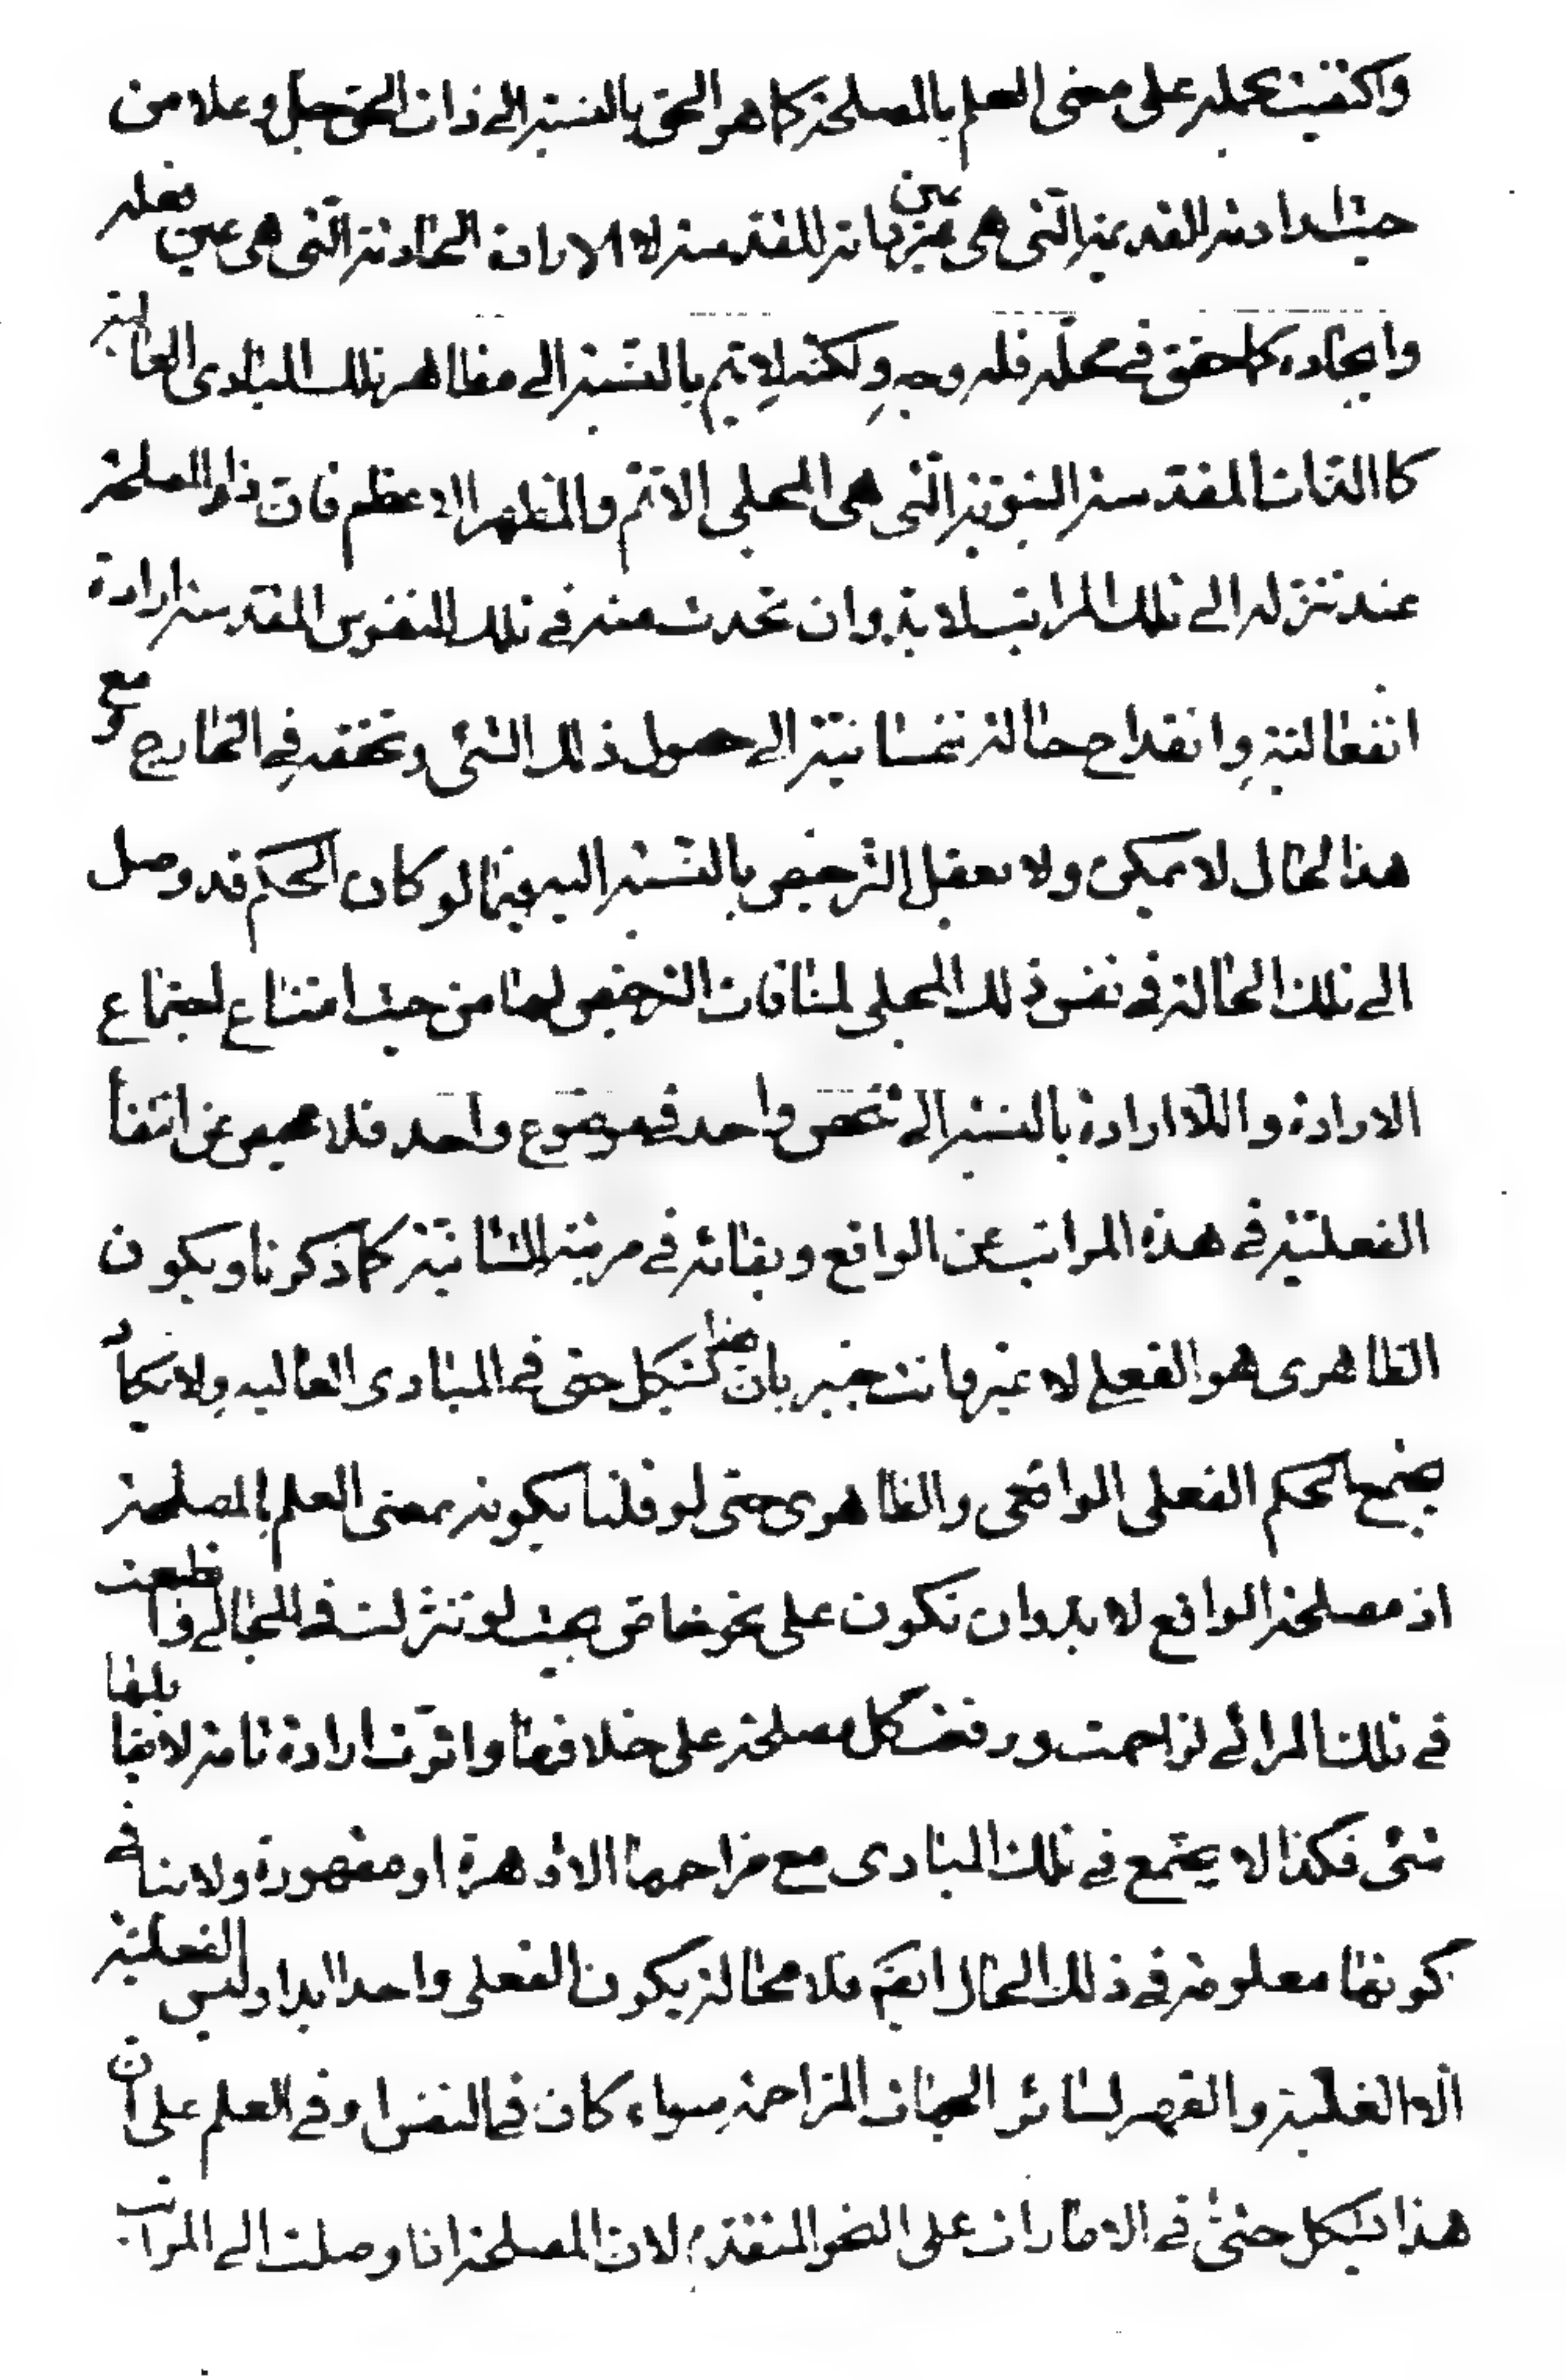 واكتفيت بحمله على معنى العلم بالمصلحة كما هو الحق بالنسبة الى ذات الحق جل وعلا من
حيث ارادته القديمة التى هى عين ذاته المقدسة لا الارادة الحادثة التى هى عين فعله
وايجاده كما حقق فى محله فله وجه ولكنه لا يتم بالنسبة الى مظاهر تلك المبادى العالية
كالذات المقدسة النبوية التى هى المجلى الاتم والمظهر الاعظم فان ذا المصلحة
عند تنزله الى تلك المراتب لا بد وان تحدث منه فى تلك النفوس المقدسة ارادة
انفعالية وانقداح حالة نفسانية الى حصول ذلك الشئ وتحققه فى الخارج و مع
هذا الحال لا يمكن ولا يعقل الترخيص بالنسبة اليه فيما لو كان الحكم قد وصل
الى تلك الحالة فى نفس ذلك المجلى لمنافات الترخيص لها من حيث امتناع اجتماع
الارادة واللاارادة بالنسبة الى شخص واحد فى موضوع واحد فلا محيص عن انتفاء
الفعلية فى هذه المراتب عن الواقع وبقائه فى مرتبة الشانية كما ذكرنا ويكون
الظاهرى هو الفعلى لا غير وانت خبير بان هذا مشكل حتى فى المبادى العاليه ولا يكاد
يجتمع الحكم الفعلى الواقعى والظاهرى حتى لو قلنا بكونه بمعنى العلم بالمصلحة
اذ مصلحة الواقع لا بد وان تكون على نحو خاص بحيث لو تنزلت فى المجالى وانطبعت
فى تلك المرائى لزاحمت ورفضت كل مصلحة على خلافها واثرت ارادة تامة لا يقابلها
شئ فكذا لا يجتمع فى تلك المبادى مع مزاحمها الا قاهرة او مقهورة ولا ينافى
كونها معلومة فى ذلك الحال ايضا فلا محالة يكون الفعلى واحدا ابدا وليس الفعلية
الا الغلبة والقهر لسائر الجهات المزاحمة سواء كان فى النفس او فى العلم على ان
هذا يشكل حتى فى الامارات على النحو المتقدم لان المصلحة اذا وصلت الى المراتب